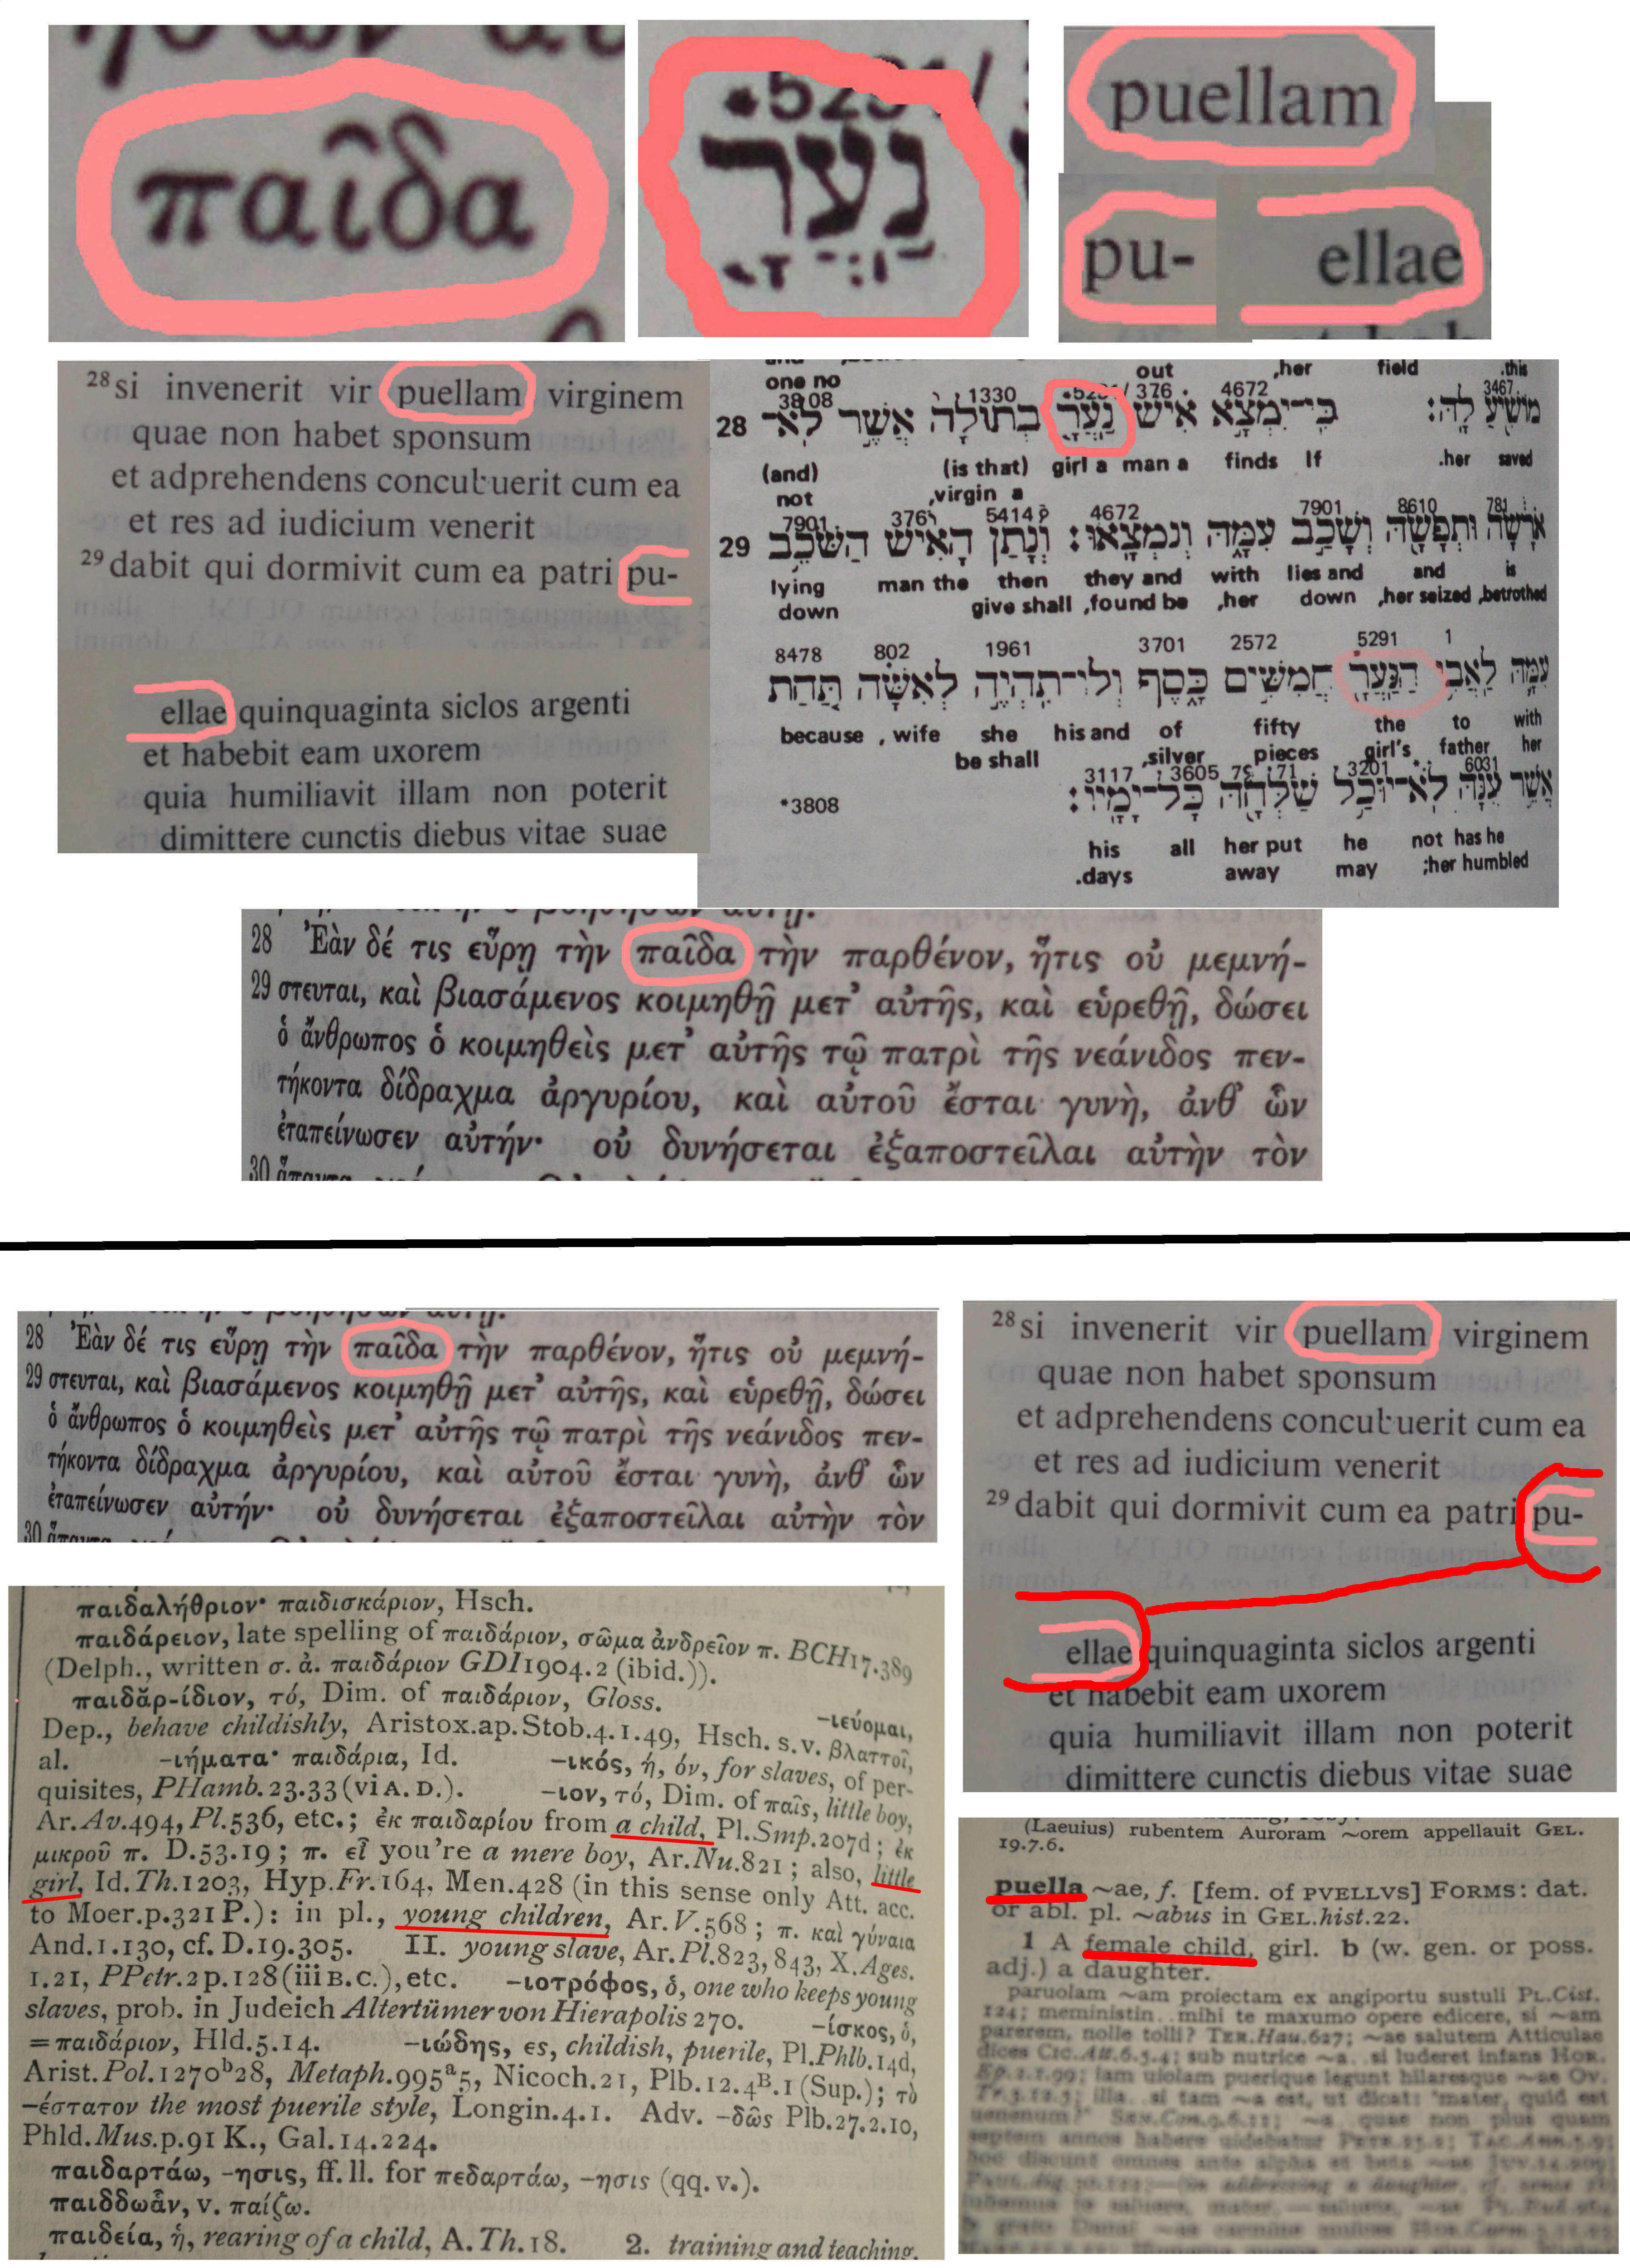 παῖδα
נַעֲרָ
puellam
pu- ellae
28 si invenerit vir puellam virginem
quae non habet sponsum
et adprehendens concubuerit cum ea
et res ad iudicium venerit
29 dabit qui dormivit cum ea patri pu-
ellae quinquaginta siclos argenti
et habebit eam uxorem
quia humiliavit illam non poterit
dimittere cunctis diebus vitae suae
out ,her field .this
one no
3808 1330 376 4672 3467
28 מוֹשִׁיעַ לָהּ׃ כִּי־יִמְצָא אִישׁ נַעֲרָ בְתוּלָה אֲשֶׁר לֹא־
(and) (is that) girl a man a finds If .her saved
not ,virgin a
7901 376 5414 4672 7901 8610 781
29 אֹרָשָׂה וּתְפָשָׂהּ וְשָׁכַב עִמָּהּ וְנִמְצָאוּ׃ וְנָתַן הָאִישׁ הַשֹּׁכֵב
lying man the then they and with lies and and is
down give shall ,found be ,her down ,her seized ,betrothed
8478 802 1961 3701 2572 5291 1
עִמָּהּ לַאֲבִי הַנַּעֲרָ חֲמִשִּׁים כָּסֶף וְלוֹ־תִהְיֶה לְאִשָּׁה תַּחַת
because , wife she his and of fifty the to with
be shall ,silver pieces girl's father her
3117 3605 7971 3201 6031
*3808 אֲשֶׁר עִנָּהּ לֹא־יוּכַל שַׁלְּחָהּ כָּל־יָמָיו׃
his all her put he not has he
.days away may ;her humbled
28 Ἐὰν δέ τις εὕρῃ τὴν παῖδα τὴν παρθένον, ἥτις οὐ μεμνή-
29 στευται, καὶ βιασάμενος κοιμηθῇ μετ’ αὐτῆς, καὶ εὑρεθῇ, δώσει
ὁ ἄνθρωπος ὁ κοιμηθεὶς μετ’ αὐτῆς τῷ πατρὶ τῆς νεάνιδος πεν-
τήκοντα δίδραχμα ἀργυρίου, καὶ αὐτοῦ ἔσται γυνή, ἀνθ’ ὧν
ἐταπείνωσεν αὐτήν· οὐ δυνήσεται ἐξαποστεῖλαι αὐτὴν τὸν
30
28 Ἐὰν δέ τις εὕρῃ τὴν παῖδα τὴν παρθένον, ἥτις οὐ μεμνή-
29 στευται, καὶ βιασάμενος κοιμηθῇ μετ’ αὐτῆς, καὶ εὑρεθῇ, δώσει
ὁ ἄνθρωπος ὁ κοιμηθεὶς μετ’ αὐτῆς τῷ πατρὶ τῆς νεάνιδος πεν-
τήκοντα δίδραχμα ἀργυρίου, καὶ αὐτοῦ ἔσται γυνή, ἀνθ’ ὧν
ἐταπείνωσεν αὐτήν· οὐ δυνήσεται ἐξαποστεῖλαι αὐτὴν τὸν
30
28 si invenerit vir puellam virginem
quae non habet sponsum
et adprehendens concubuerit cum ea
et res ad iudicium venerit
29 dabit qui dormivit cum ea patri pu-
ellae quinquaginta siclos argenti
et habebit eam uxorem
quia humiliavit illam non poterit
dimittere cunctis diebus vitae suae
παιδαλήθριον· παιδισκάριον, Hsch.
παιδάρειον, late spelling of παιδάριον, σῶμα ἀνδρεῖον π. BCH17.389
(Delph., written σ. ἀ. παιδάριον GDI1904.2 (ibid.)).
παιδᾰρ-ίδιον, τό, Dim. of παιδάριον, Gloss. -ιεύομαι,
Dep., behave childishly, Aristox.ap.Stob.4.1.49, Hsch. s.v. βλαττοῖ,
al. -ιήματα· παιδάρια, Id. -ικός, ή, όν, for slaves, of per-
quisites, PHamb.23.33 (vi A. D.). -ιον, τό, Dim. of παῖς, little boy,
Ar.Av.494, Pl.536, etc.; ἐκ παιδαρίου from a child, Pl.Smp.207d; ἐκ
μικροῦ π. D.53.19; π. εἶ you're a mere boy, Ar.Nu.821; also, little
girl, Id.Th.1203, Hyp.Fr.164, Men.428 (in this sense only Att. acc.
to Moer.p.321 P.): in pl., young children, Ar.V.568; π. καὶ γύναια
And.1.130, cf. D.19.305. II. young slave, Ar.Pl.823, 843, X.Ages.
1.21, PPetr.2p.128 (iii B.C.), etc. -ιοτρόφος, ὁ, one who keeps young
slaves, prob. in Judeich Altertümer von Hierapolis 270. -ίσκος, ὁ,
=παιδάριον, Hld.5.14. -ιώδης, ες, childish, puerile, Pl.Phlb.14d,
Arist.Pol.1270ᵇ28, Metaph.995ᵃ5, Nicoch.21, Plb.12.4ᴮ.1 (Sup.); τὸ
-έστατον the most puerile style, Longin.4.1. Adv. -δῶς Plb.27.2.10,
Phld.Mus.p.91 K., Gal.14.224.
παιδαρτάω, -ησις, ff. ll. for πεδαρτάω, -ησις (qq. v.).
παιδδωἇν, v. παίζω.
παιδεία, ἡ, rearing of a child, A.Th.18. 2. training and teaching,
(Laeuius) rubentem Auroram ~orem appellauit GEL.
19.7.6.
puella ~ae, f. [fem. of PVELLVS] FORMS: dat.
or abl. pl. ~abus in GEL.hist.22.
1 A female child, girl. b (w. gen. or poss.
adj.) a daughter.
paruolam ~am proiectam ex angiportu sustuli PL.Cist.
124; meministin.. mihi te maxumo opere edicere, si ~am
parerem, nolle tolli? TER.Hau.627; ~ae salutem Atticulae
dices CIC.Att.6.5.4; sub nutrice ~a.. si luderet infans HOR.
Ep.2.1.99; iam uiolam puerique legunt hilaresque ~ae OV.